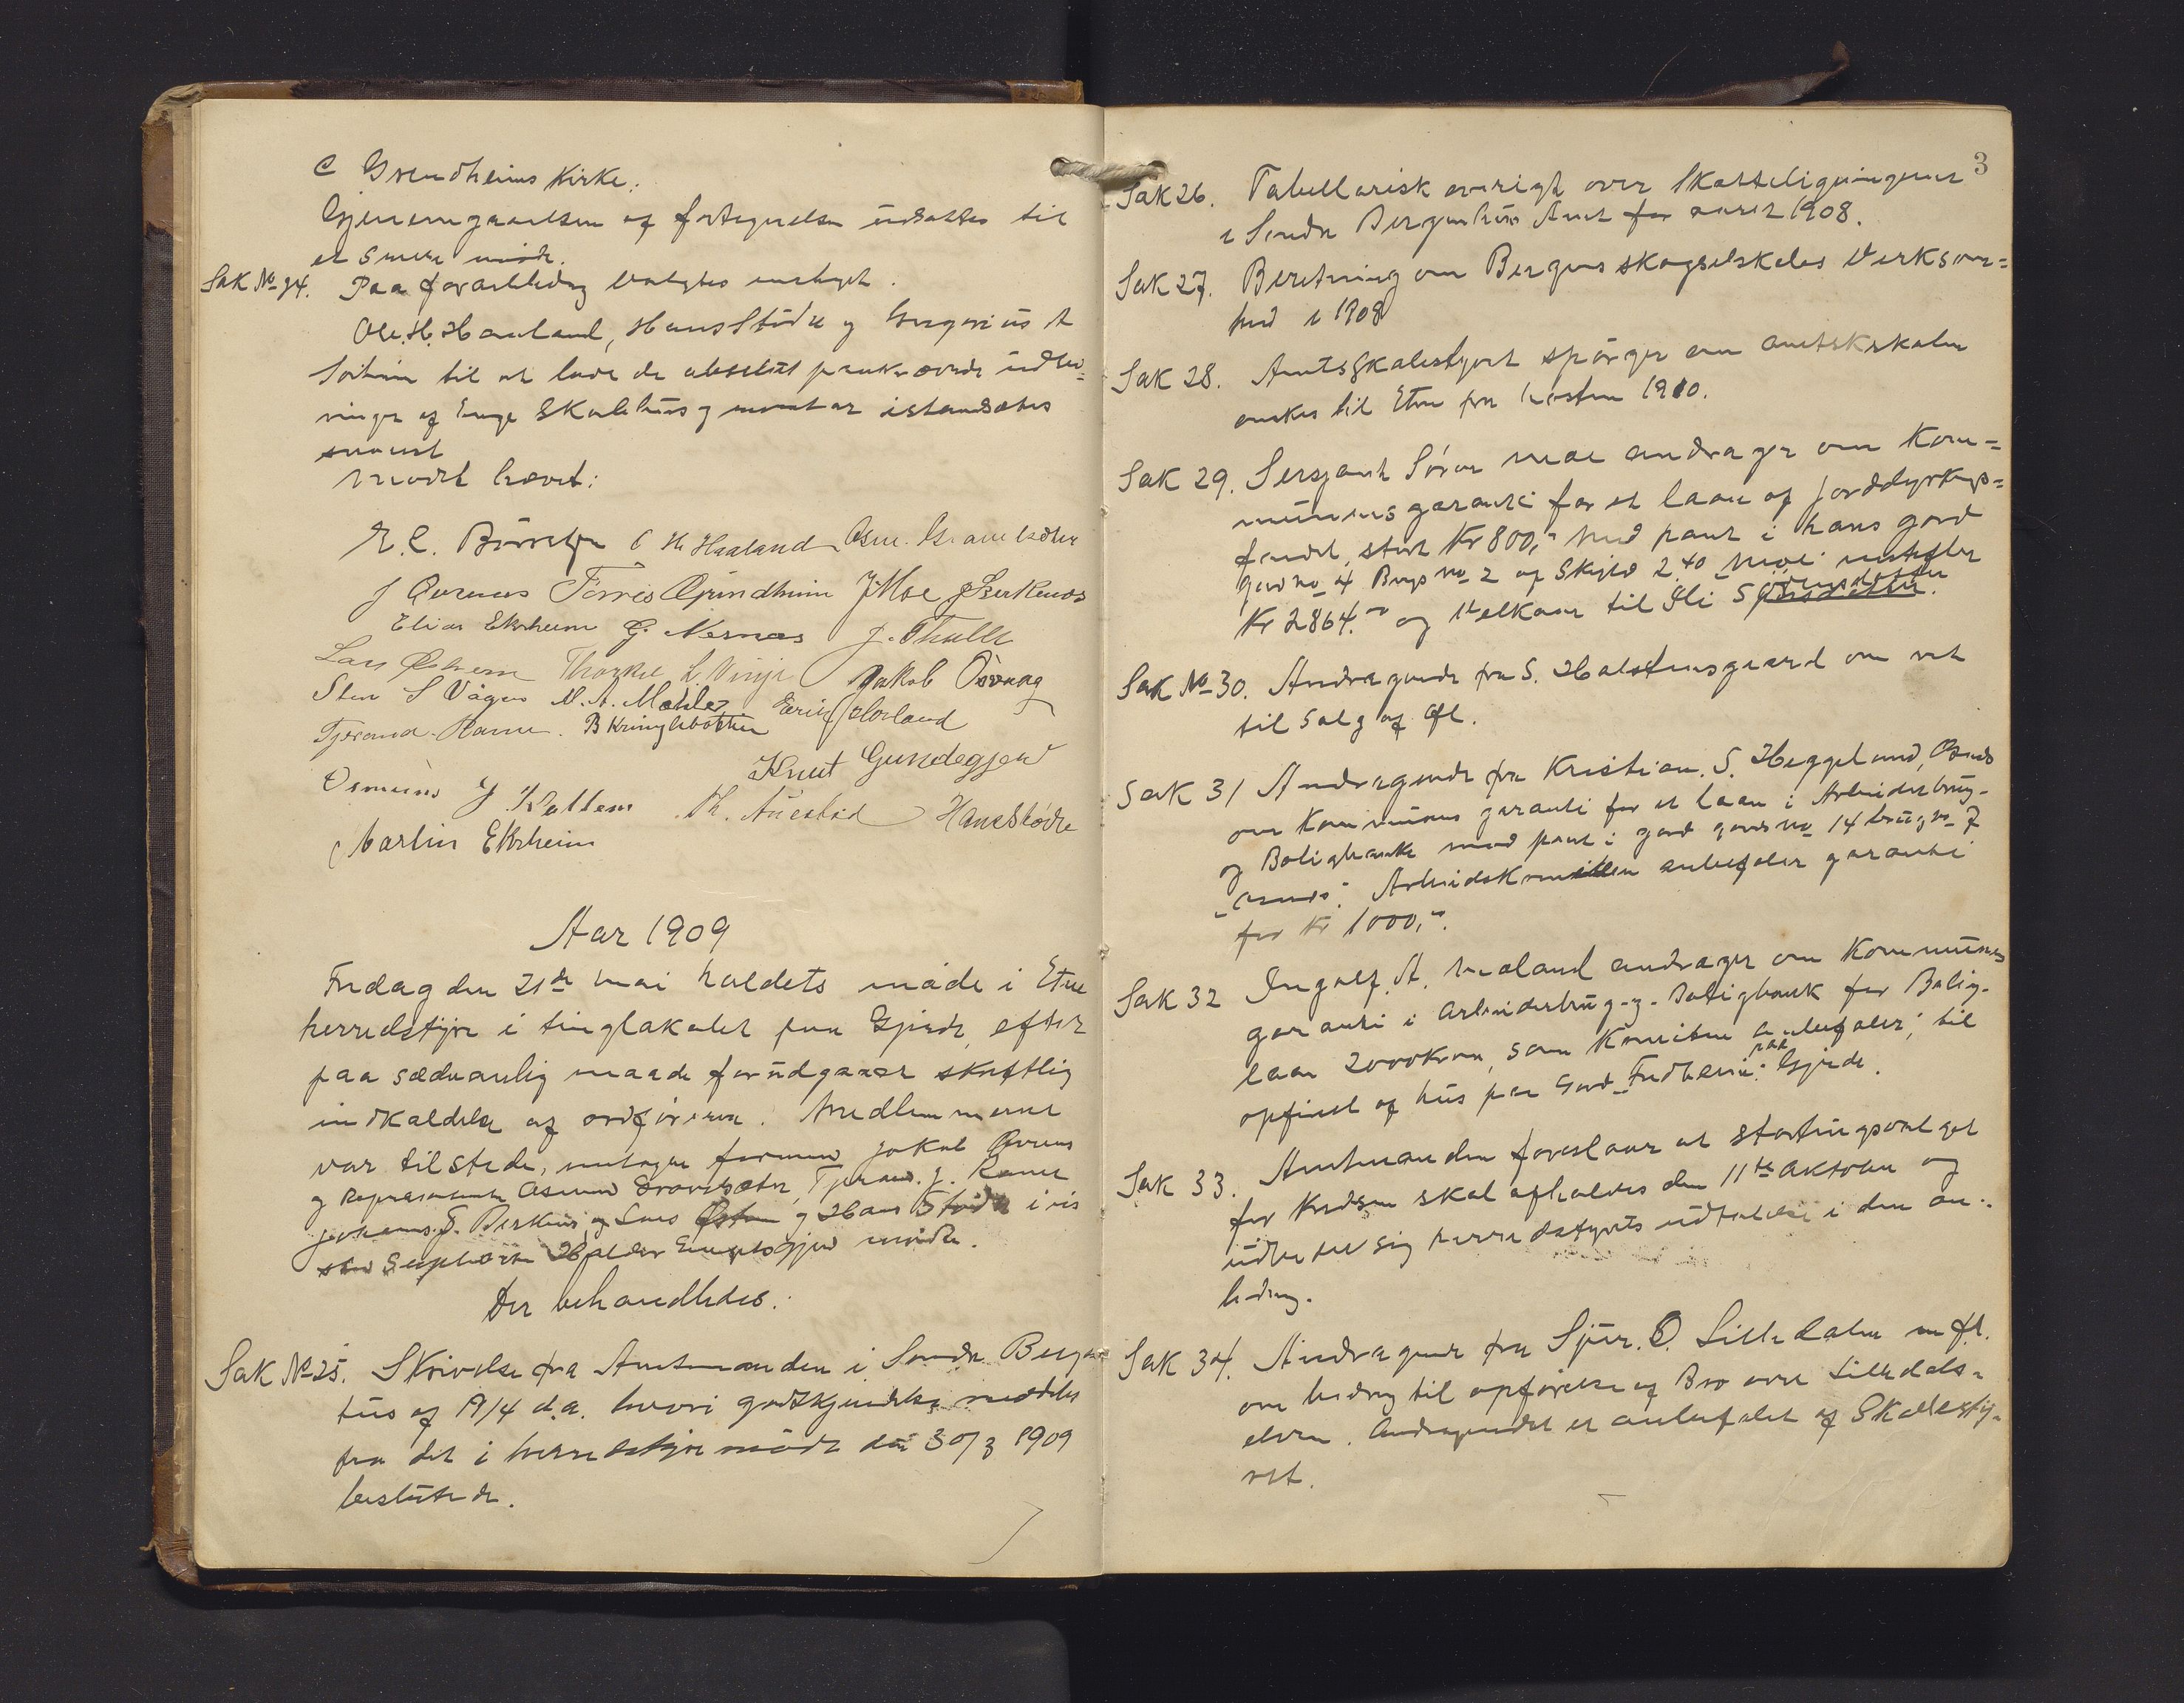 C Grendheims Kirke.
Gjennemgaaelsen af fortegnelsen udsattes til
et senere møde.
Sak No 24. Paa foranledning valgtes enstemt.
Ole. H. Haaland, Hans Støde og Gregorius A
til at lave de absolut paakrævede udbed=
ringer af Enge Skolehus og muret istandsættes
snarest
Mødet hævet:
E. C. Børretzen O H Haaland Asm. Gravelsæter
J Øvrenes Torris Grindheim J Moe J Berkenes
Elias Ekrheim G. Nernæs J. Thulle
Lars Østrem Thorkel L. Vinje Jakob Osvaag
Sten S Vågen M. A. Mæhler Eerik Hovland
Tjerand Ramn. B Kringlebotten
Knut Gundegjerd
Osmund J Kallem Th. Auestad Hans Stødle
Martin Ekrheim
Aar 1909
Fredag den 21de mai holdets møde i Etne
herredstyre i tinglokalet paa Gjerde, efter
paa sædvanlig maade forudgaaet skriftlig
indkaldelse af ordføreren. Medlemmerne
var tilstede, undtagen formænd Jakob Øvrenes
og Repræsentanter Asmund Gravelsæter, Tjerand. J. Ramn
Johannes J. Berkenes og Lars Østrem og Hans Stødle
Suppleant Halldor Engelsgjerd mødte.
Der behandledes:
Sak No 25. Skrivelse fra Amtmanden i Søndre Bergen
hus af 19/4 d.a. hvori godkjendelse meddeles
paa det i herredstyre møde den 30/3 1909
besluttede.
3
Sak 26. Tabellarisk oversigt over Skatteligningerne
i Søndre Bergenhus Amt for aaret 1908.
Sak 27. Beretning om Bergens skogselskabs Virksom=
hed i 1908
Sak 28. Amtsskolestyret spørger om amtsskolen
ønskes til Etne fra høsten 1910.
Sak 29. Sersjant Søren Moe andrager om Kom=
munens garanti for et laan af jorddyrknings=
fondet, stort Kr 800,- med pant i hans gard
gardno 4 Brugs no 2 af Skyld 2.40 "Moe"
Kr 2864.- og Velkaar til Eli Sjursdotter.
Sak No 30. Andragende fra S. Halstensgaard om ret
til salg af øl.
Sak 31 Andragende fra Kristian. S. Heggelund, Osnes
om Kommunens garanti for et laan i Arbeiderbrug-
og Boligbank mod pant i gard gards no 14 brugs no 7
"Osnes". Arbeidskomiteen anbefaler garanti
for Kr 1000,-.
Sak 32 Ingolf. A. Mæland andrager om Kommunens
garanti i Arbeiderbrug-og-Boligbank for Bolig-
laan 2000 kroner, som Komiteen anbefaler; til
opførsel af hus paa Gard "Fredheim" paa Gjerde.
Sak 33. Amtmanden foreslaar at stortingsvalget
for Kredsen skal afholdes den 11te oktober og
udbeder sig herredstyrets udtalelse i den an=
ledning.
Sak 34. Andragende fra Sjur. O. Lilledalen m fl.
om bidrag til opførelse af Bro over Lilledals=
elven. Andragendet er anbefalet af Skolesty=
ret.